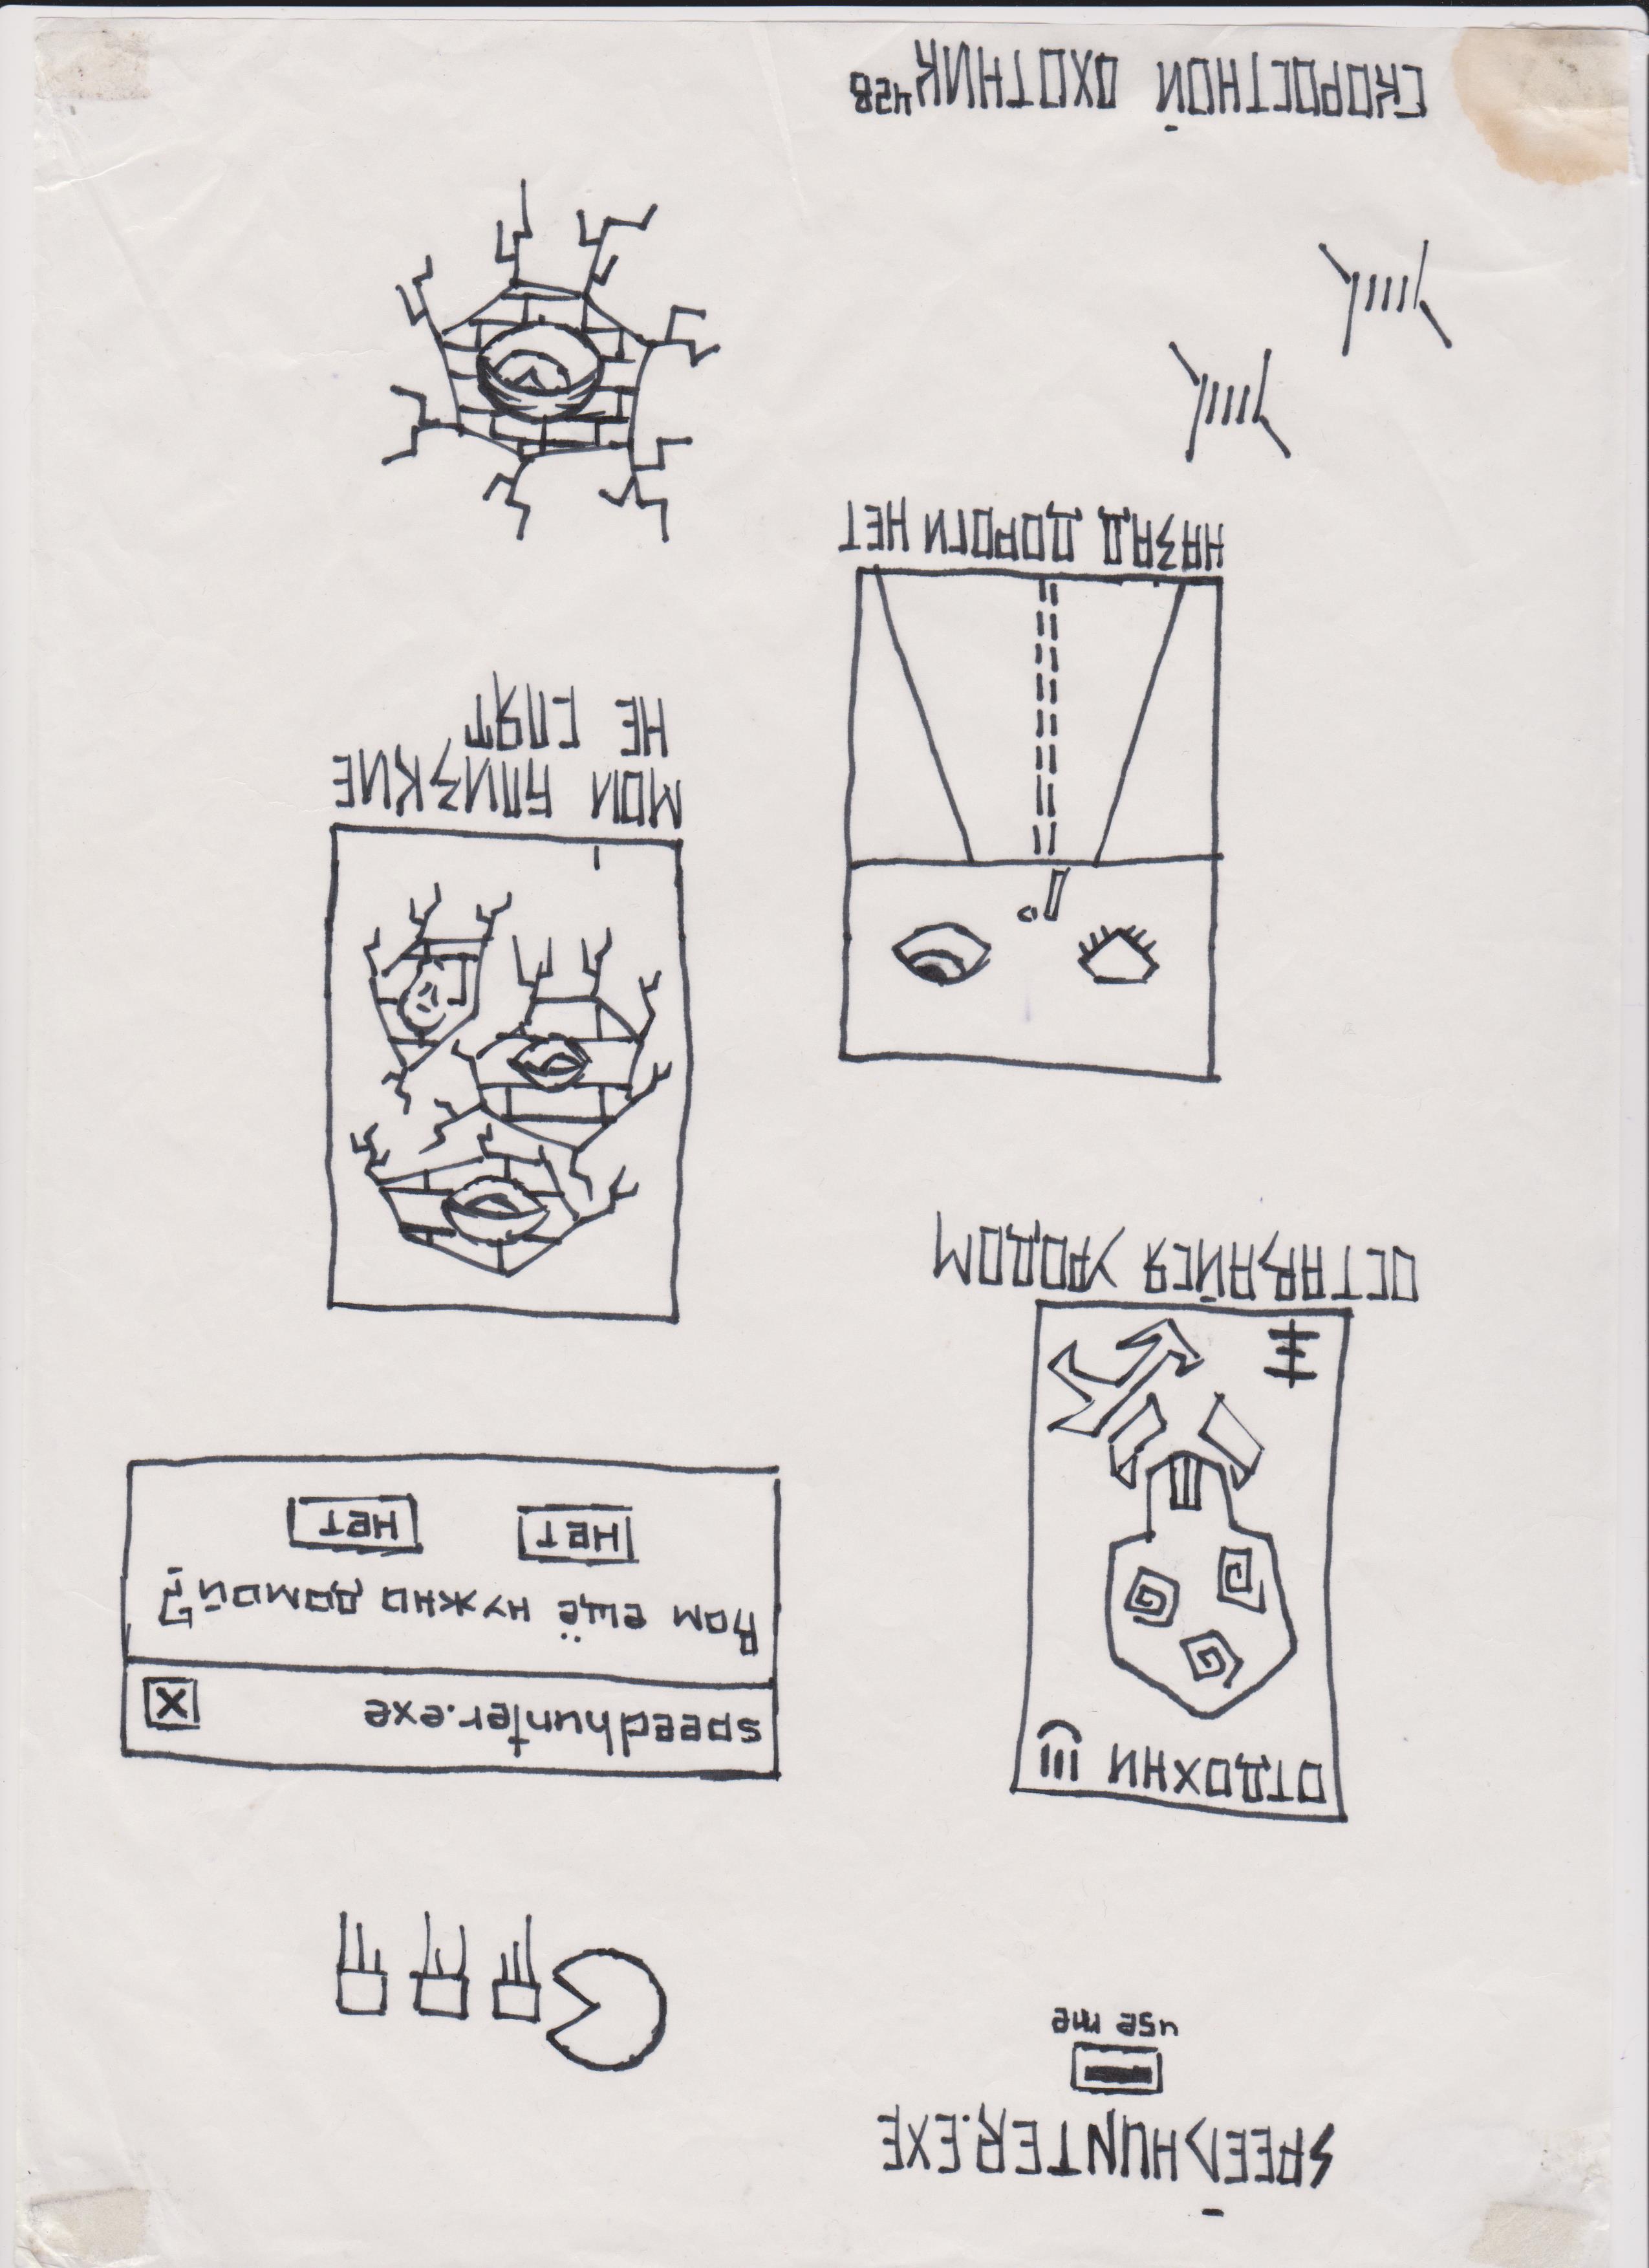 SPEEDHUNTER.EXE
use me
ОТДОХНИ !!!
ОСТАВАЙСЯ УРОДОМ
speedhunter.exe
X
Вам ещё нужно домой?
нет нет
МОИ БЛИЗКИЕ
НЕ СПЯТ
НАЗАД ДОРОГИ НЕТ
СКОРОСТНОЙ ОХОТНИК42В